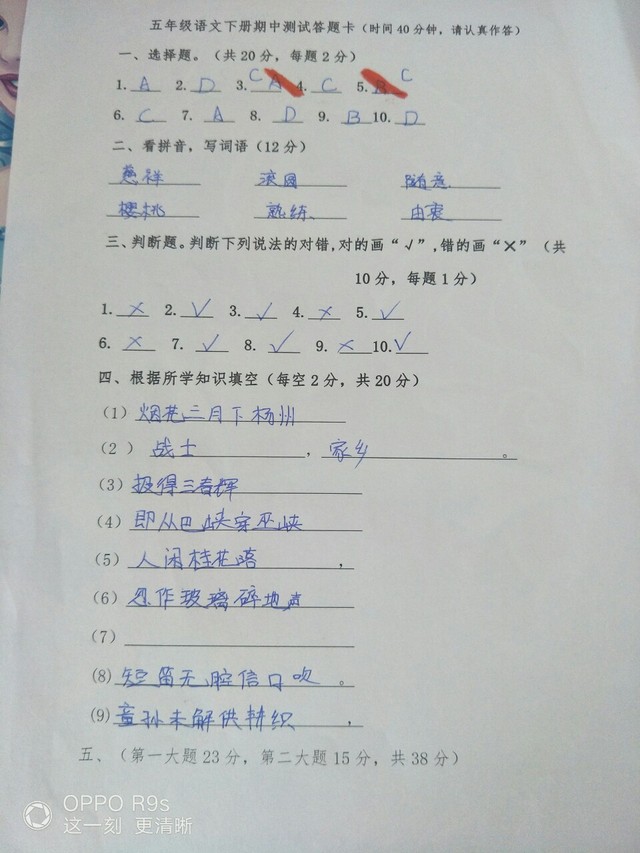 五年级语文下册期中测试答题卡（时间40分钟，请认真作答）
一、选择题。（共20分，每题2分）
1. A 2. D 3. C A 4. C 5. B C
6. C 7. A 8. D 9. B 10. D
二、看拼音，写词语（12分）
慈祥 滚圆 随意
樱桃 熟练 由衷
三、判断题。判断下列说法的对错，对的画“√”，错的画“×”（共
10分，每题1分）
1. × 2. √ 3. √ 4. × 5. √
6. × 7. √ 8. √ 9. × 10. √
四、根据所学知识填空（每空2分，共20分）
（1）烟花三月下杨州
（2）战士，家乡。
（3）报得三春晖
（4）即从巴峡穿巫峡
（5）人闲桂花落，
（6）忽作玻璃碎地声
（7）
（8）短笛无腔信口吹。
（9）童孙未解供耕织，
五、（第一大题23分，第二大题15分，共38分）
OPPO R9s
这一刻 更清晰